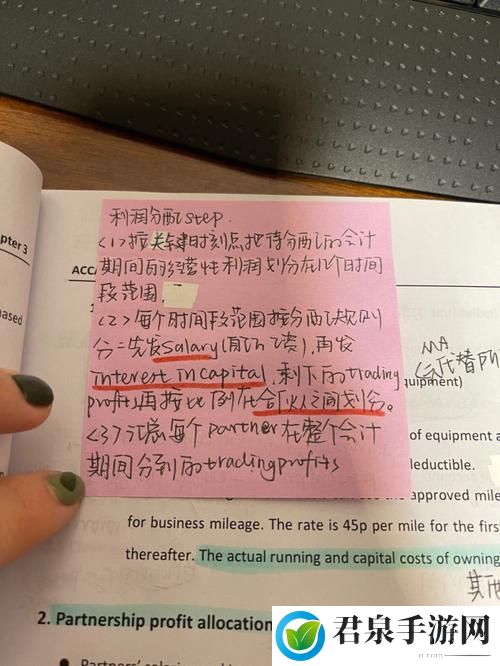 利润分配step.
<1>按关键时刻点,把待分配的会计
期间的经营性利润划分在几个时间
段范围.
<2>每个时间段范围按分配规则
分:先发salary(前几乙凑),再发
interest in capital,剩下的trading
profit,再按比例在合伙人之间划分。
<3>汇总每个partner在整个会计
期间分到的trading profits
pter 3
ACCA
ased
MA
quipment)
of equipment a
deductible.
approved mile
for business mileage. The rate is 45p per mile for the first
thereafter. The actual running and capital costs of owning
2. Partnership profit allocation
君泉手游网